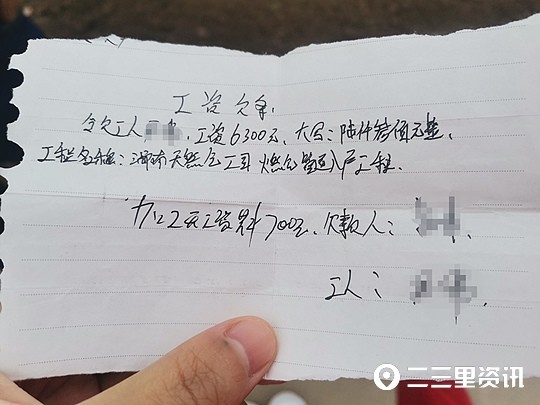 工资欠条
今欠工人 工资6300元,大写:陆仟叁佰元整.
工程名称: 天然气工司 燃气 入户工程.
加2天工资 700元、欠款人:
工人:
二三里资讯